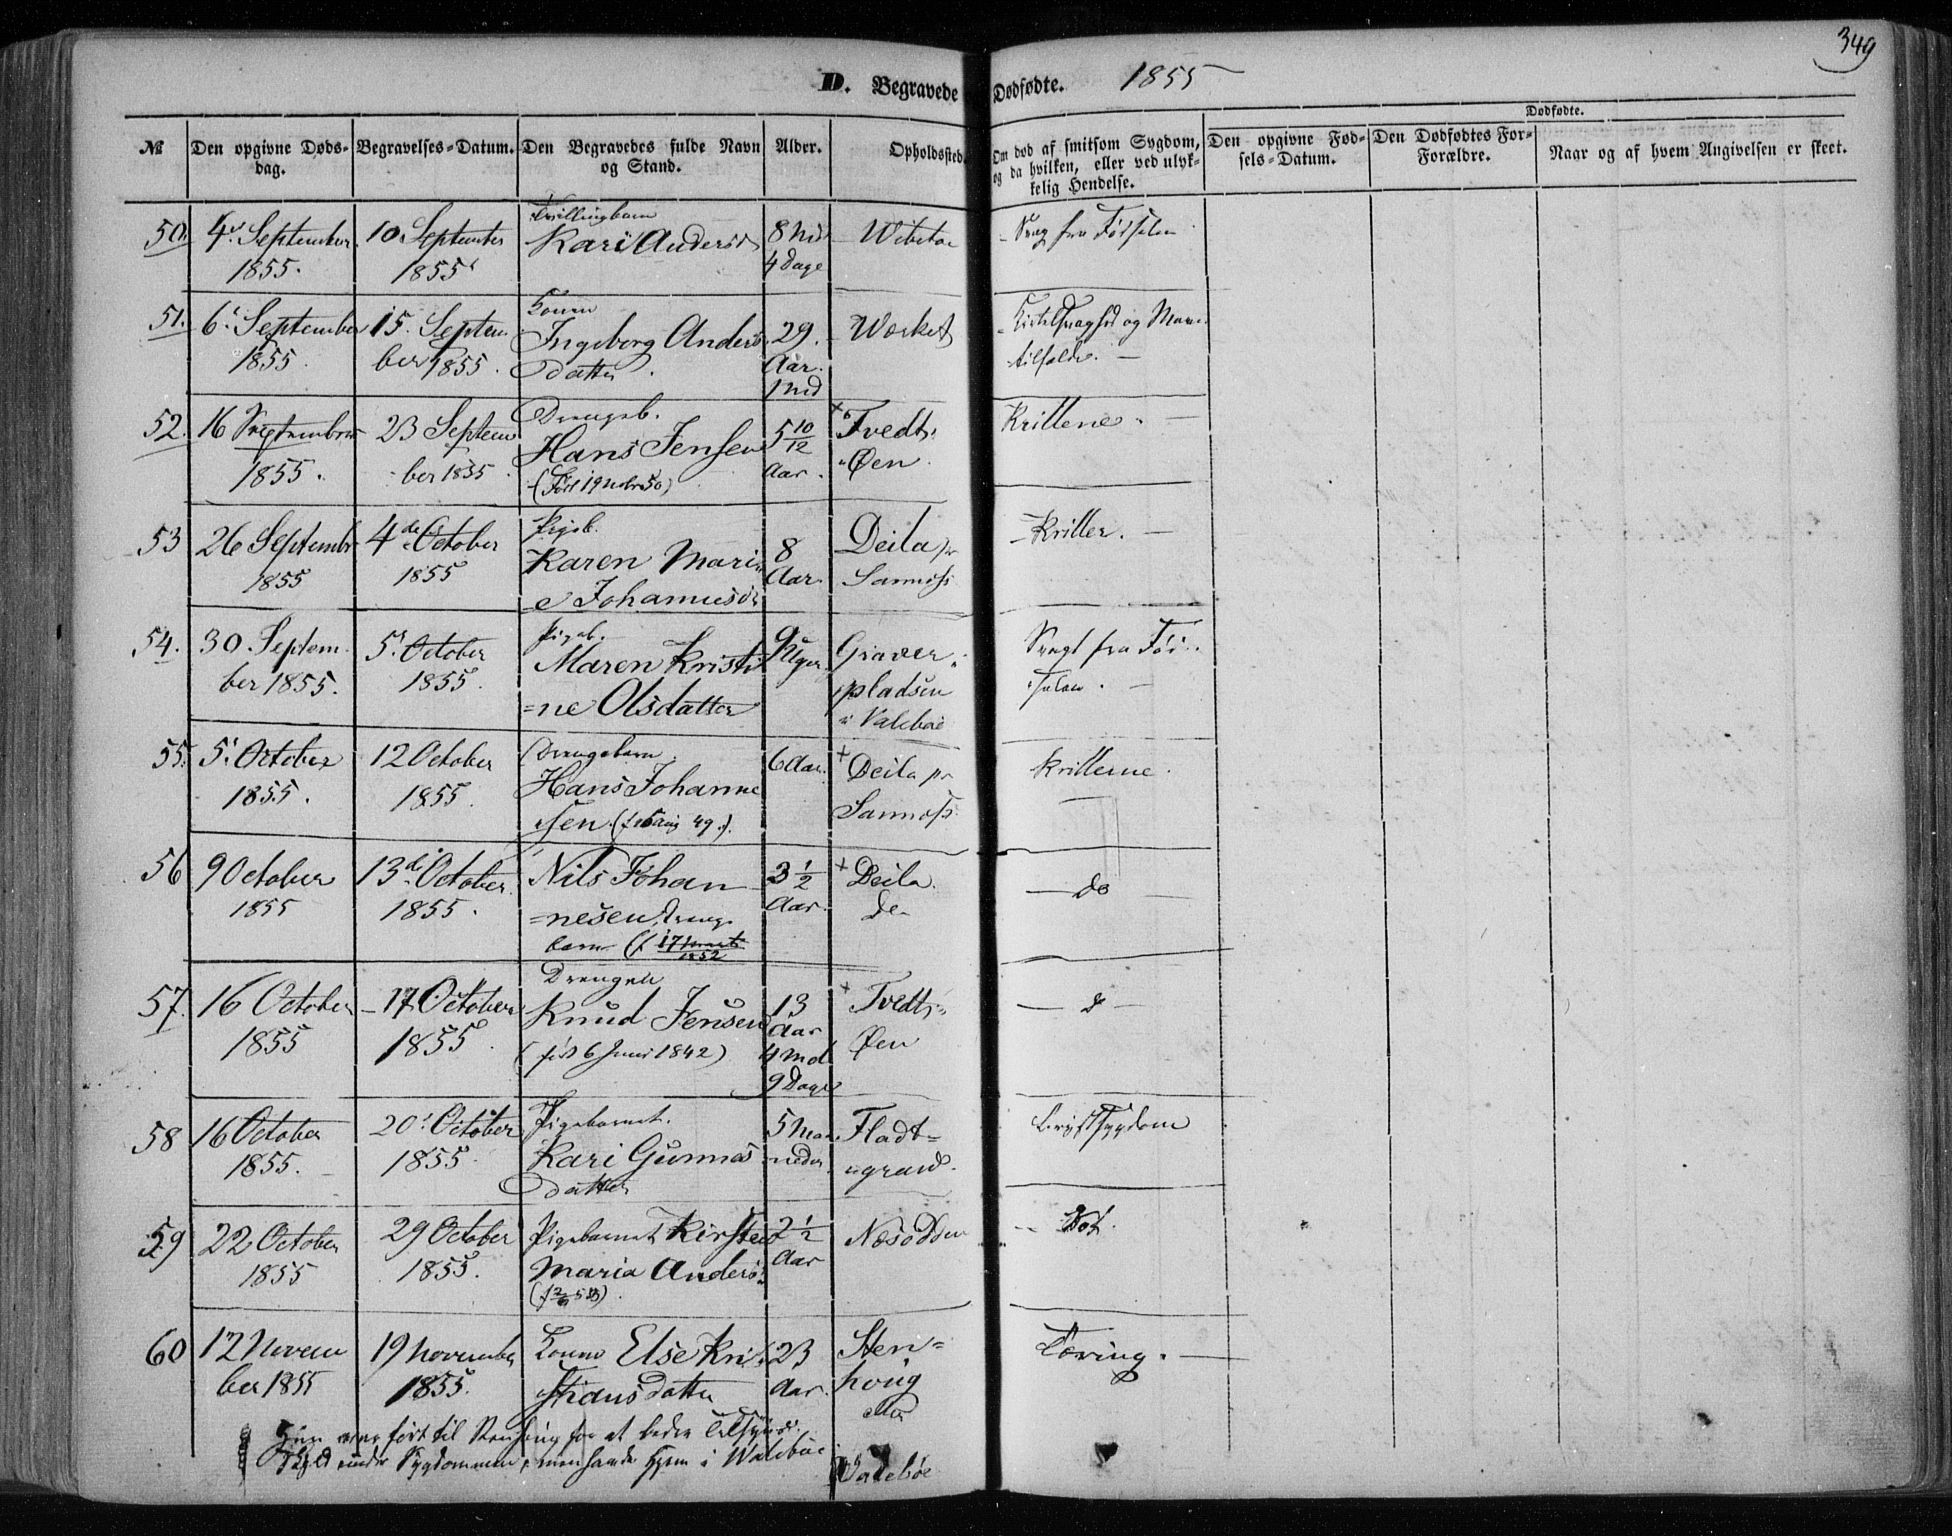 349
D. Begravede Dødfødte. 1855
Dødfødte.
№
Den opgivne Døds-
dag.
Begravelses-Datum.
Den Begravedes fulde Navn
og Stand.
Alder.
Opholdssted.
Om død af smitsom Sygdom,
og da hvilken, eller ved ulyk-
kelig Hendelse.
Den opgivne Fød-
sels-Datum.
Den Dødfødtes For-
Forældre.
Naar og af hvem Angivelsen er skeet.
50.
4. September
1855.
10. September
1855
Tvillingbarn
Kari Andersd
8 Md
4 Dage
Wibetoe
Svag fra Fødselen
51.
6. September
1855
15. Septem
ber 1855.
Konen
Ingeborg Anders
datter.
29.
Aar.
1 Md
Wærket
Kirtelsvaghed og
tilfælde.
52.
16 September
1855.
23 Septem
ber 1855
Drengeb.
Hans Jensen
(Født 19 Nobr 50)
5 10/12
Aar.
+ Tvedt-
Øen.
Krillerne.
53
26 Septembr
1855
4de October
1855
Pigeb.
Karen Mari-
e Johannesd
8
Aar.
Deila pr
Sannøss
Kriller.
54.
30. Septem-
ber 1855.
5. October
1855.
Pigeb.
Maren Kristi
=ne Olsdatter
9 Uger.
Graver-
pladsen
i Valebøe
Svagt fra Fød-
selen.
55.
5. October
1855.
12 October
1855
Drengebarn
Hans Johanne
sen. (f. 16 Aug 49.)
6 Aar.
+ Deila pr
Sannøss
Krillerne.
56
9 October
1855
13de October
1855.
Nils Johan
=nesen, Drenge
barn (f. 17 Marts
1852
3 1/2
Aar.
+ Deila.
do
do
57.
16 October
1855
17. October
1855.
Drengen
Knud Jensen
(født 6 Juni 1842)
13
Aar
4 Md
9 Dage
+ Tvedt-
Øen
do
58
16 October
1855.
20. October
1855.
Pigebarnet.
Kari Gunnas
datter
5 Maa-
neder
Fladt=
grand.
Brystsygdom
59
22 October
1855
29 October
1855.
Pigebarnet Kirsten
Maria Andersd.
2 1/2
Aar
Næsodden
60
12 Novem
ber 1855
19 November
1855.
Konen Else Kri
stiansdatter
23
Aar.
Sten=
houg
eller
Valebøe
Tæring.
Hun var ført til Stenhoug for at bedre Tilsyn
under Sygdommen, men havde Hjem i Walebøe